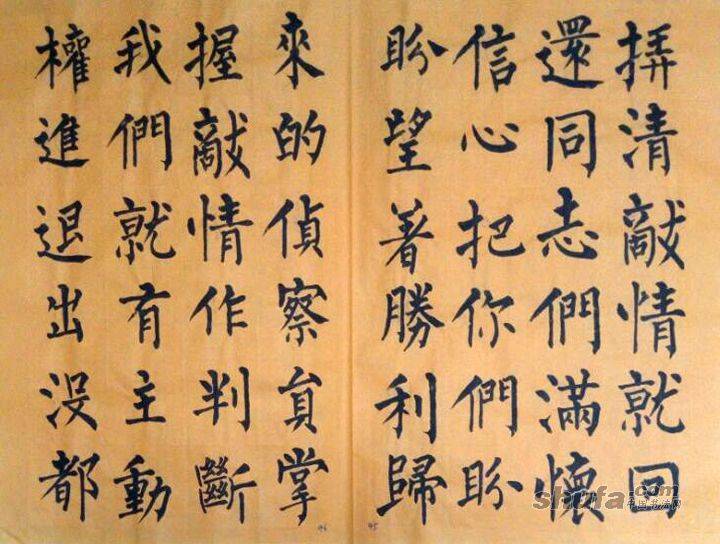 弄清敵情就回
還同志們滿懷
信心把你們盼
盼望著勝利歸
來的偵察員掌
握敵情作判斷
我們就有主動
權進退出没都
45
46
shufa.com
中国书法网